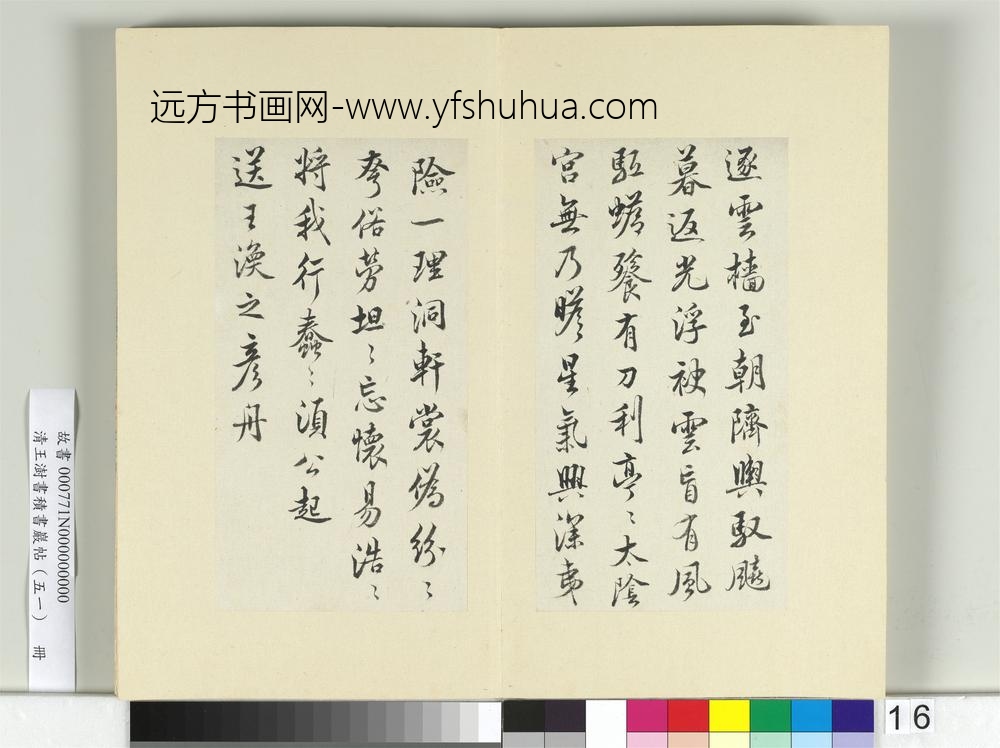 远方书画网-www.yfshuhua.com
逐雲檣至朝隮輿馭飈
暮返光浮袂雲旨有風
駈蟾餮有刀利亭〻太陰
宮無乃瞻星氣興深夷
險一理洞軒裳偽紛〻
夸俗勞坦〻忘懷易浩〻
將我行蠢〻須公起
送王渙之彥舟
故書 000771N000000000
清王澍書積書巖帖(五一) 冊
16